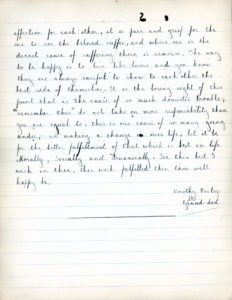 2
affection for each other, it is pain and grief for the
me to see the beloved suffer, and where one is the
direct cause of suffering there is remorse. The way
to be happy is to live like lovers and you know
they are always careful to show to each other the
best side of themselves. It is the losing sight of this
point that is the cause of so much domestic trouble,
remember this "do not take on more responsibility than
you are equal to, this is one cause of so many going
under, in making a change in ones life, let it be
for the better fulfillment of that which is best in life
Morally, Socially and Financially. See this best I
wish in thee, this wish fulfilled then thou will
happy be.
Timothy
Grand-dad